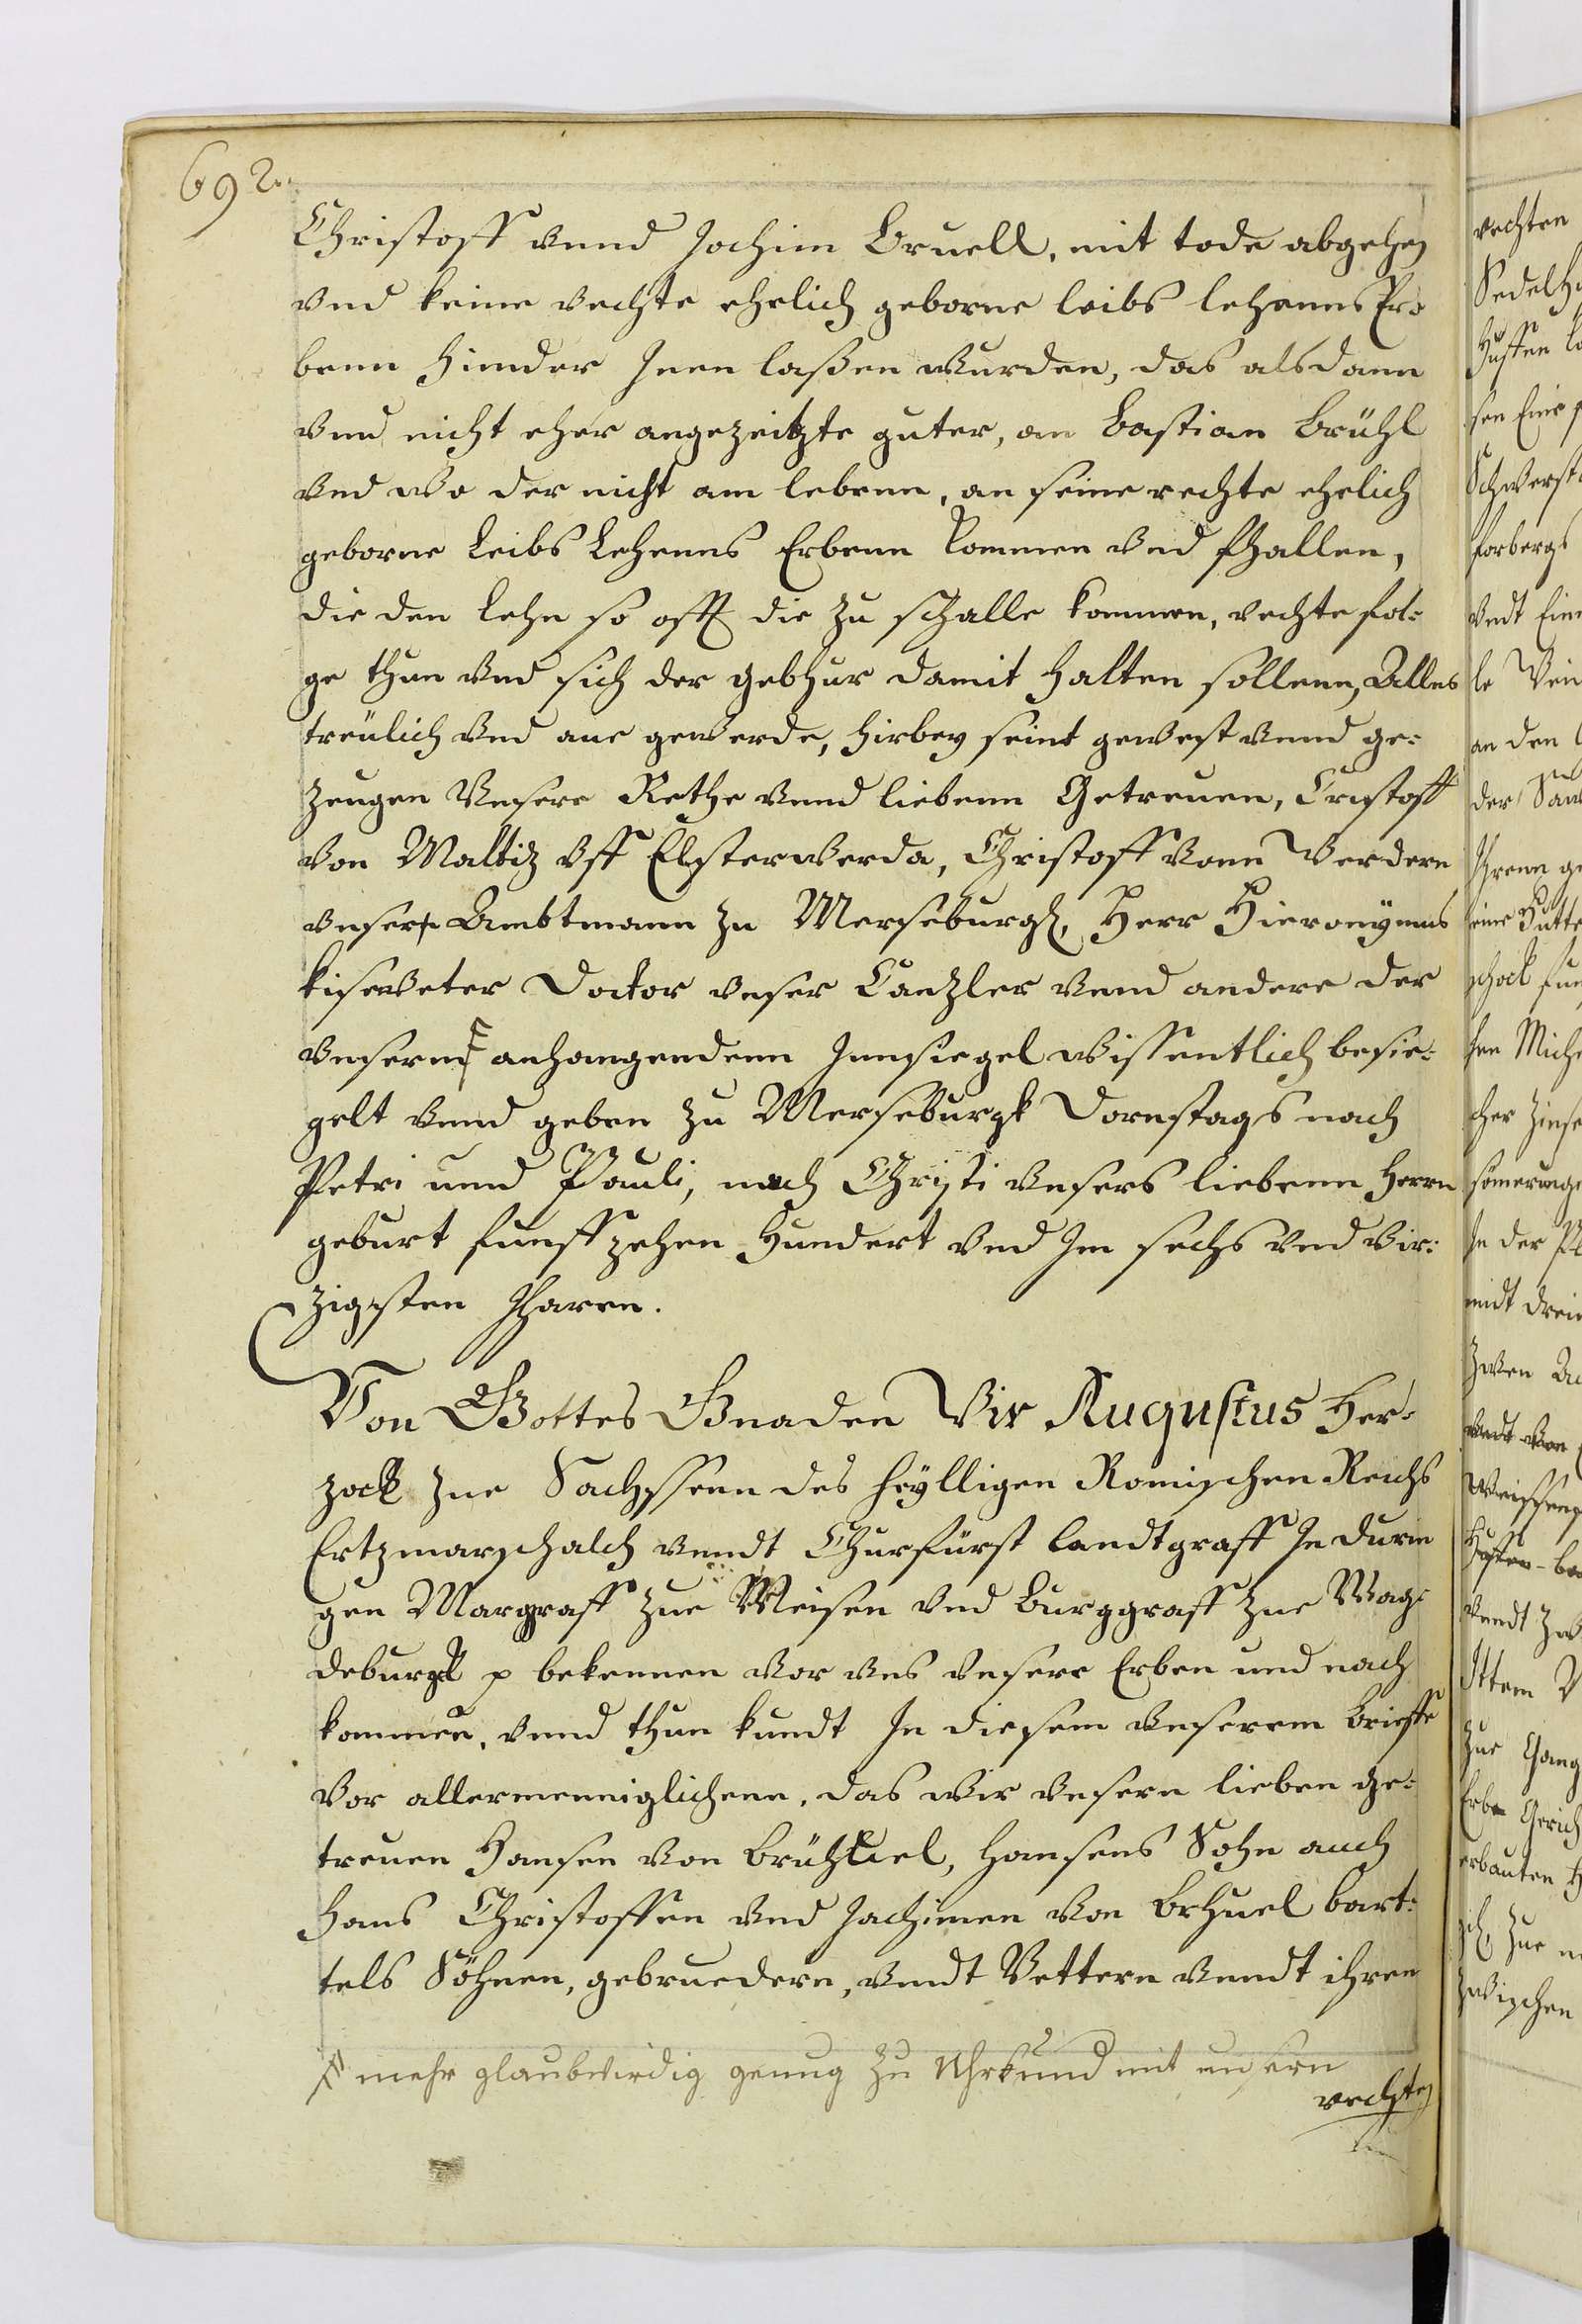 692.
Christoff vnnd Jochim Bruell, mit tode abgehen
vnd keine rechte ehelich geborne leibs lehenns Er-
benn hinder Jnen laßen wurden, das alsdann
vnnd nicht eher angezeitzte guter, an Bastian Brühl
vnd wo der nicht am lebenn, an seine rechte ehelich
geborne Leibs Lehenns Erbenn kommen vnd fhallen,
die den lehn so offt die zu fhalle kommen, rechte fol-
ge thun vnd sich der gebhur damit halten sollenn, Alles
treulich vnd ane gewerde, hirbey seint gewest vnnd ge-
zeugen Vnsere Rethe vnnd liebenn Getreuen, Cristoff
von Maltiz vff Elsterwerda, Christoff vonn Werdern
vnser Ambtmann zu Merseburgk, Herr Hieronymus
kiseweter Doctor vnser Canzler vnnd andere der
vnsern anhangendenn Jnnsiegel wissentlich besie-
gelt vnnd geben zu Merseburgk Dornstags nach
Petri unnd Pauli, nach Christi vnsers liebenn Herrn
geburt funffzehen Hundert vnd Jm sechs vnd vir-
zigsten Jharen.
Von Gottes Gnaden Wir Augustus Her-
zock zue Sachssenn des heylligen Romischen Reichs
Ertzmarschalch vnndt Churfürst landtgraff Jn Durin
gen Margraff zue Meisen vnd Burggraff zue Mag-
deburgk p bekennen vor vns vnsere Erben und nach
kommen, vnnd thun kundt Jn diesem vnserem brieffe
vor allermenniglichenn, das wir vnsern lieben ge-
treuen Hansen von Brühl, Hansens Sohn auch
Hans Christoffen vnd Jachimen von Brhuel bart-
tels Söhnen, gebruedern, vnndt Vettern vnndt ihren
mehr glaubwirdig genug zu Uhrkund mit unsern
rechten
rechten
Huffen
vndt
an den
der
schock
midt
vnndt
Jttem
zue
zwischen